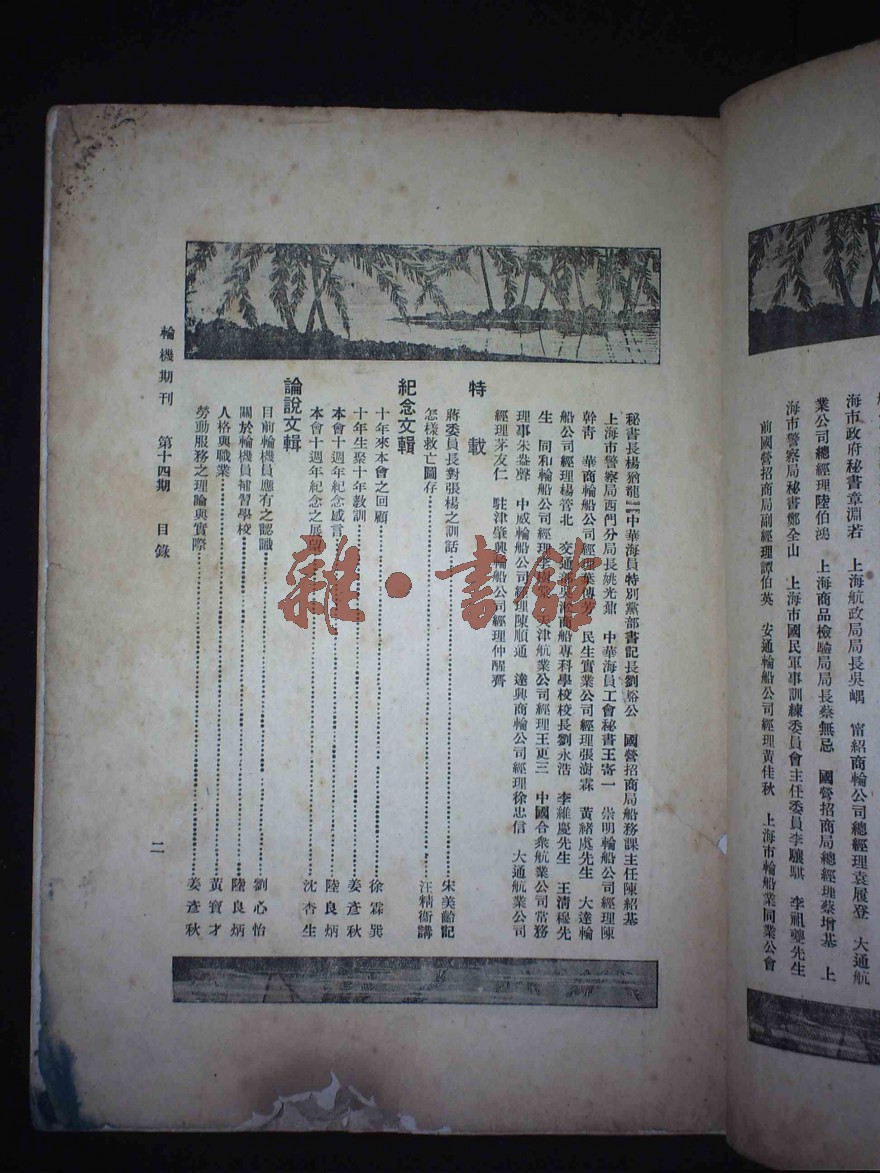 海市政府秘書章淵若 上海航政局局長吳嵎 甯紹商輪公司總經理袁履登 大通航
業公司總經理陸伯鴻 上海商品檢驗局局長蔡無忌 國營招商局總經理蔡增基 上
海市警察局秘書鄭全山 上海市國民軍事訓練委員會主任委員李驤騏 李祖夔先生
前國營招商局副經理譚伯英 安通輪船公司經理黃佳秋 上海市輪船業同業公會
秘書長楊猶龍 中華海員特別黨部書記長劉裕公 國營招商局船務課主任陳紹基
上海市警察局西門分局長姚光鼐 中華海員工會秘書王寄一 崇明輪船公司經理陳
幹青 華商輪船公司經理葉傳芳 民生實業公司經理張澍霖 黃緒虞先生 大達輪
船公司經理楊管北 交通部吳淞商船專科學校校長劉永浩 李維慶先生 王清穆先
生 同和輪船公司經理李 天津航業公司經理王更三 中國合衆航業公司常務
理事朱盎聲 中威輪船公司經理陳順通 達興商輪公司經理徐忠信 大通航業公司
經理茅友仁 駐津肇興輪船公司經理仲醒齊
特載
蔣委員長對張楊之訓話 宋美齡記
怎樣救亡圖存 汪精衞講
紀念文輯
十年來本會之回顧 徐霖巽
十年生聚十年教訓 姜彥秋
本會十週年紀念感言 陸良炳
本會十週年紀念之展望 沈杏生
論說文輯
目前輪機員應有之認識 劉心怡
關於輪機員補習學校 陸良炳
人格與職業 黃寶才
勞動服務之理論與實際 姜彥秋
輪機期刊 第十四期 目錄 二
雜·書館